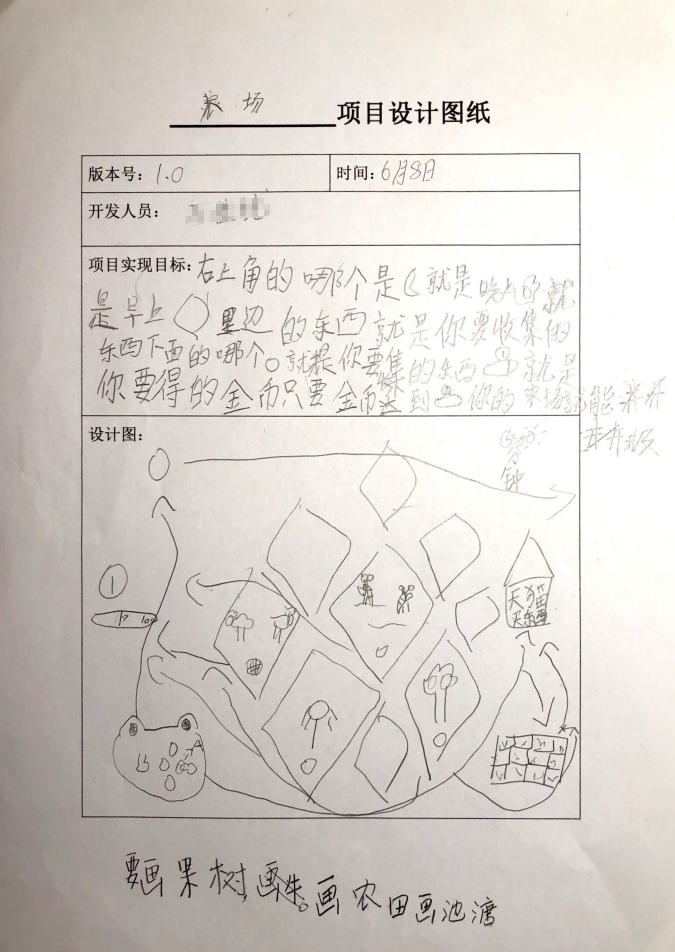 农场 项目设计图纸
版本号：1.0 时间：6月8日
开发人员：
项目实现目标：右上角的哪个是 就是晚上 就
是早上 里边的东西就是你要收集的
东西下面的哪个。就是你要集的东西 就是
你要得的金币只要金币 到 你的农场就能升
设计图：
分
钟
1
天猫
要画果树,画 。画农田画池溏